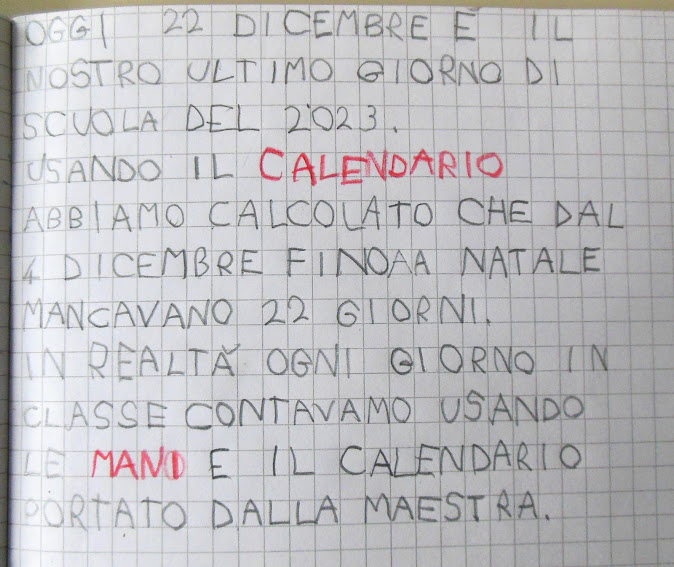 OGGI 22 DICEMBRE È IL
NOSTRO ULTIMO GIORNO DI
SCUOLA DEL 2023.
USANDO IL CALENDARIO
ABBIAMO CALCOLATO CHE DAL
4 DICEMBRE FINOAA NATALE
MANCAVANO 22 GIORNI.
IN REALTÀ OGNI GIORNO IN
CLASSE CONTAVAMO USANDO
LE MANO E IL CALENDARIO
PORTATO DALLA MAESTRA.